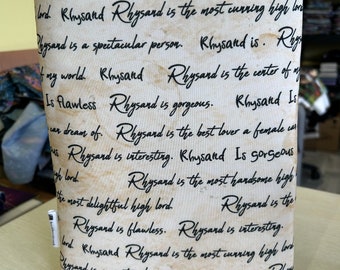 lord. Rhysand Rhysand is the most cunning high lord
Rhysand is a spectacular person. Rhysand is . Rhys
my world. Rhysand Rhysand is the center of m
Is flawless Rhysand is gorgeous. Rhysand Is
can dream of. Rhysand is the best lover a female can
Rhysand is interesting. Rhysand Is gorgeous
high lord. Rhysand is the most handsome high
the most delightful high lord. Rhysand
Rhysand is flawless. Rhysand is interesting.
lord Rhysand Rhysand is the most cunning high lord
Rhysand is a spectacular person.